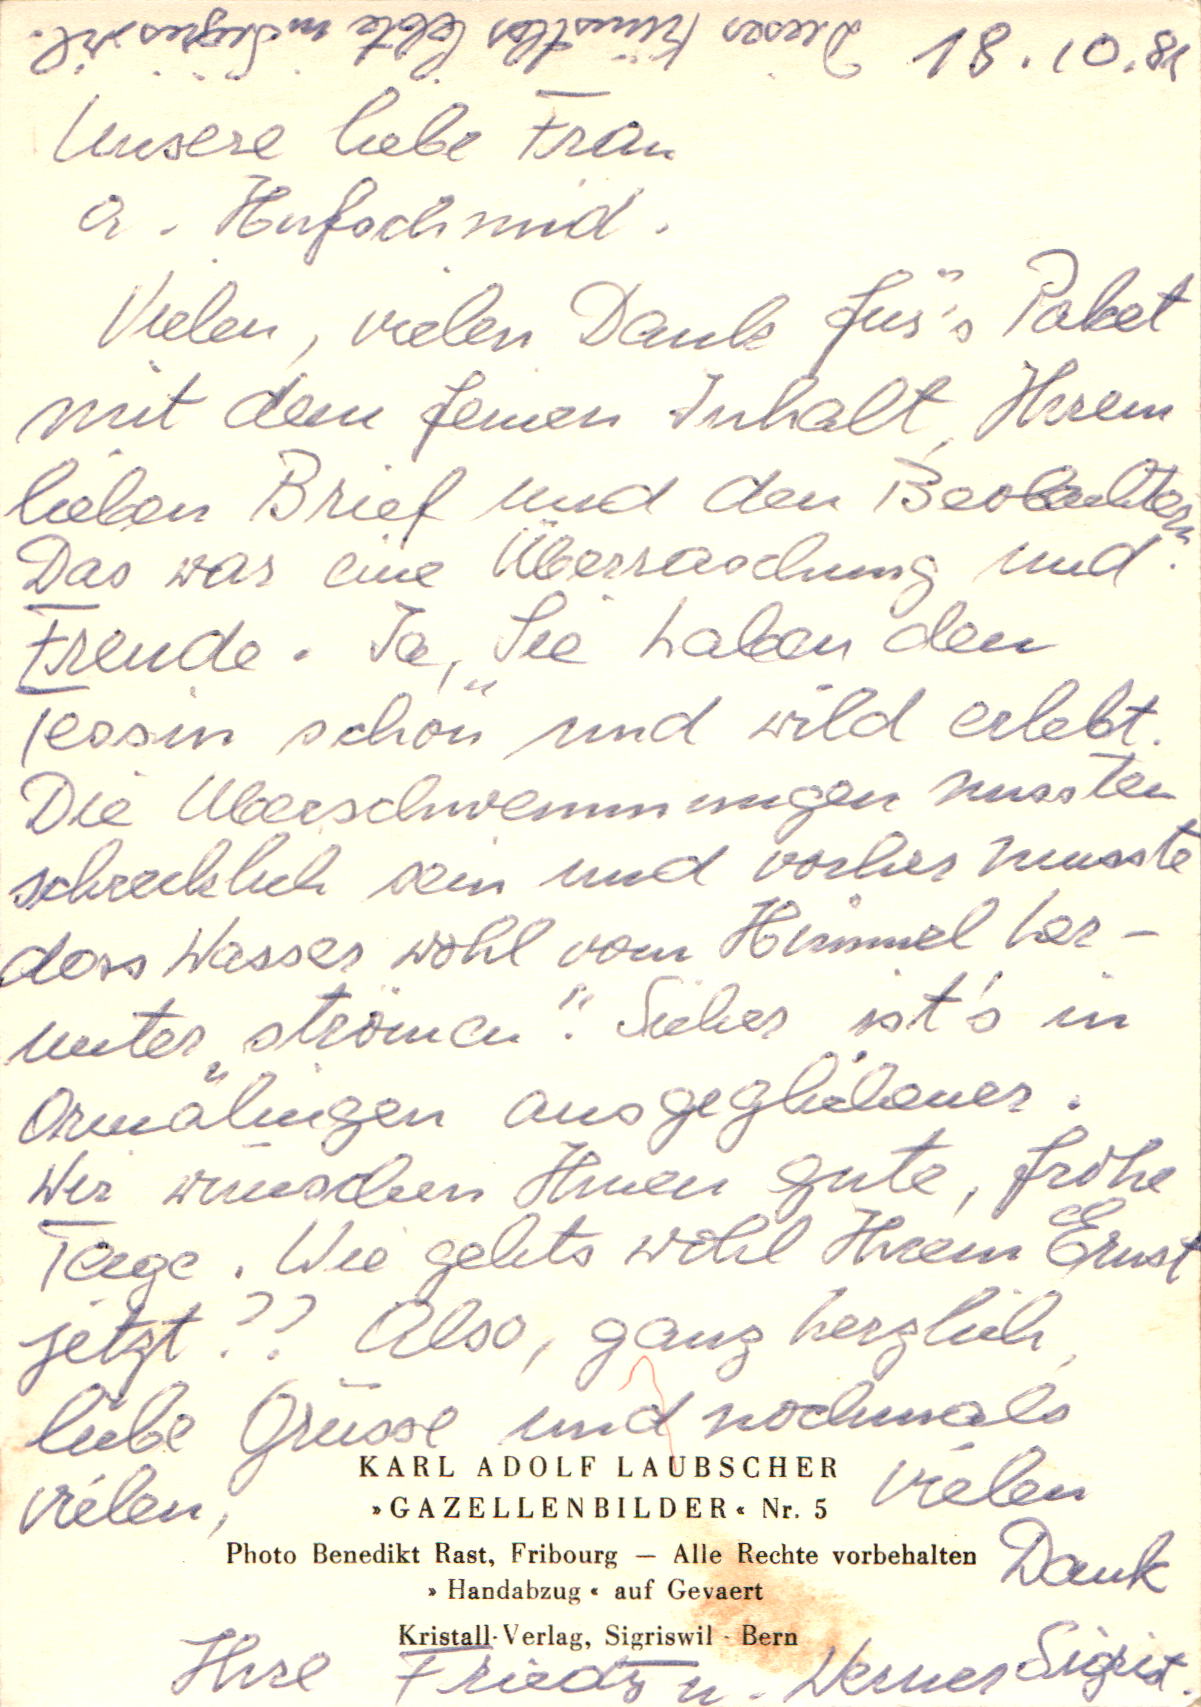 Dieser Künstler lebte in Sigriswil.
18.10.81
Unsere liebe Frau
a. Hufschmid.
Vielen, vielen Dank für's Paket
mit dem feinen Inhalt, Ihrem
lieben Brief und den Beobachtern.
Das war eine Überraschung und
Freude. Ja, Sie haben den
Tessin „schön" und wild erlebt.
Die Überschwemmungen mussten
schrecklich sein und vorher musste
dass Wasser wohl vom Himmel her-
unter „strömen". Sicher ist's in
Ormalingen ausgeglichener.
Wir wünschen Ihnen gute, frohe
Tage. Wie gehts wohl Ihrem Ernst
jetzt?? Also, ganz herzlich,
liebe Grüsse und nochmals
vielen, vielen
Dank
KARL ADOLF LAUBSCHER
»GAZELLENBILDER« Nr. 5
Photo Benedikt Rast, Fribourg — Alle Rechte vorbehalten
»Handabzug« auf Gevaert
Kristall-Verlag, Sigriswil - Bern
Ihre Friedy u. Werner Sigrist.